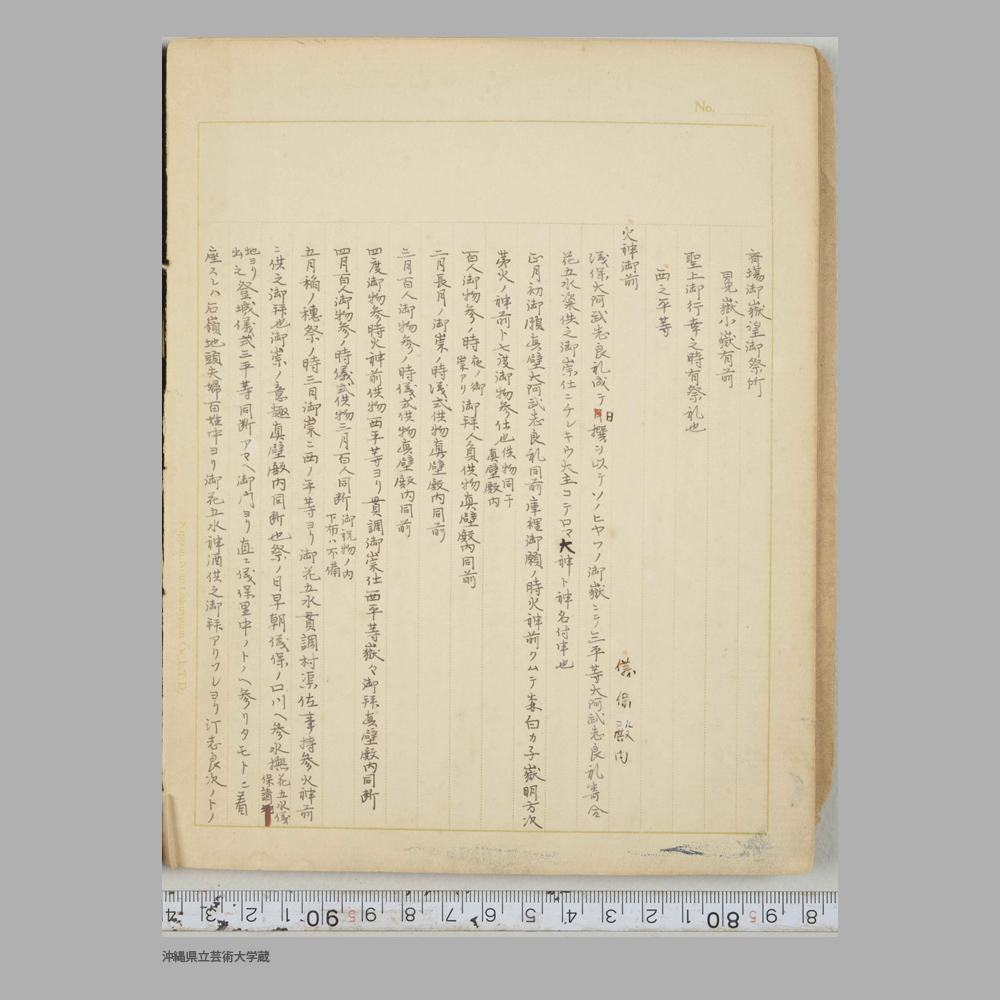 No.
斎場御嶽望御祭所
冕嶽小嶽有前
聖上御行幸之時有祭礼也
西之平等
儀保殿内
火神御前
儀保大阿武志良礼成テ日撰ヲ以テソノヒヤフノ御嶽ニテ三平等大阿武志良礼寄合
花五水楽供之御崇仕ニチレキウ大主コテロマ大神ト神名付申也
正月初御願真壁大阿武志良礼同前庫裡御願ノ時火神前クムテ森白カ子嶽明方次
第火ノ神前ト七渡御物参仕也供物同干真壁殿内
百人御物参ノ時夜ノ御崇アリ御拝人員供物真壁殿内同前
二月長月ノ御崇ノ時儀式供物真壁殿内同前
三月百人御物参ノ時儀式供物真壁殿内同前
四度御物参時火神前供物西平等ヨリ貫調御崇仕西平等嶽々御拝真壁殿内同断
四月百人御物参ノ時儀式供物三月百人同断御説物ノ内下布ハ不備
五月稲ノ穂祭ノ時三日御崇ニ西ノ平等ヨリ御花五水貫調村渠佐事持参火神前
ニ供之御拝也御崇ノ意趣真壁殿内同断也祭ノ日早朝儀保ノ口川ヘ参水撫花五水儀保諸
地ヨリ出之登城儀式三平等同断アマヘ御門ヨリ直ニ儀保里中ノトノヘ参リタモトニ着
座スレハ石嶺地頭夫婦百姓中ヨリ御花五水神酒供之御拝アリソレヨリ汀志良次ノトノ
8 9 80 1 2 3 4 5 6 7 8 9 90 1 2 3 4
沖縄県立芸術大学蔵